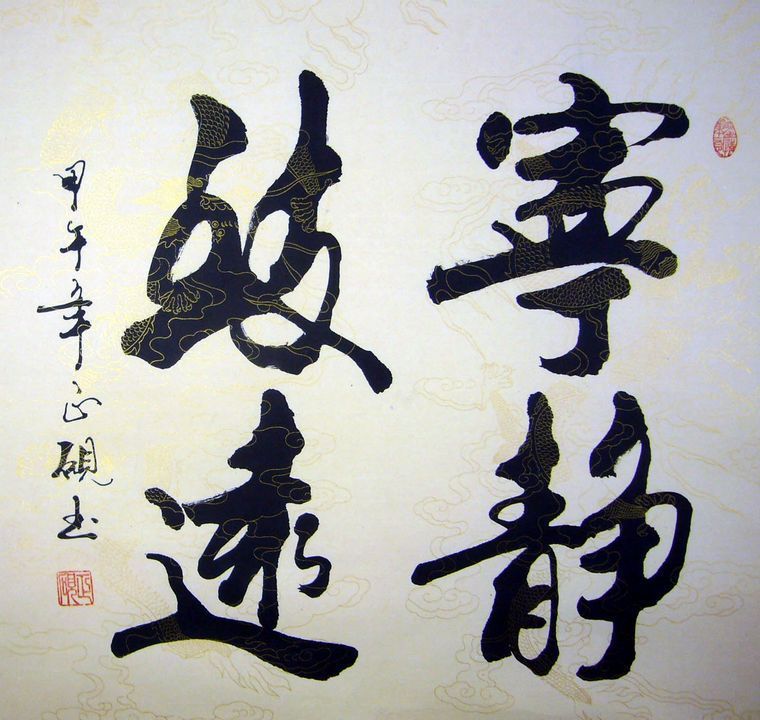 寧靜
致遠
甲午年正硯书